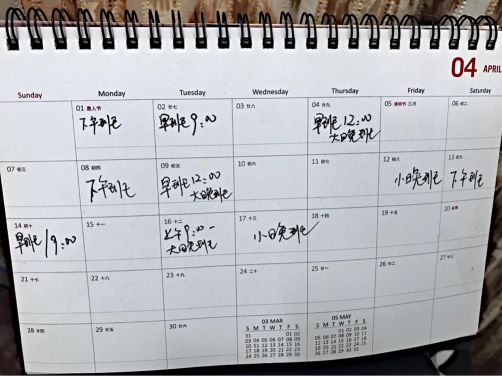 04 APRIL
Sunday Monday Tuesday Wednesday Thursday Friday Saturday
01 愚人节 02 廿七 03 廿八 04 廿九 05 清明节 三月 06 初二
下午到
早到 9:00
早到 12:00
大日晚到
07 初三 08 初四 09 初五 10 初六 11 初七 12 初八 13 初九
下午到
早到 12:00
大日晚到
小日晚到
下午到
14 初十 15 十一 16 十二 17 十三 18 十四 19 十五 20
早到 /9:00
上午 9:00 –
大日晚到
小日晚到
21 十七 22 十八 23 十九 24 二十 25 廿一 26 廿二 27 廿三
28 廿四 29 廿五 30 廿六
03 MAR
S M T W T F S
31 01 02
03 04 05 06 07 08 09
10 11 12 13 14 15 16
17 18 19 20 21 22 23
24 25 26 27 28 29 30
05 MAY
S M T W T F S
01 02 03 04
05 06 07 08 09 10 11
12 13 14 15 16 17 18
19 20 21 22 23 24 25
26 27 28 29 30 31